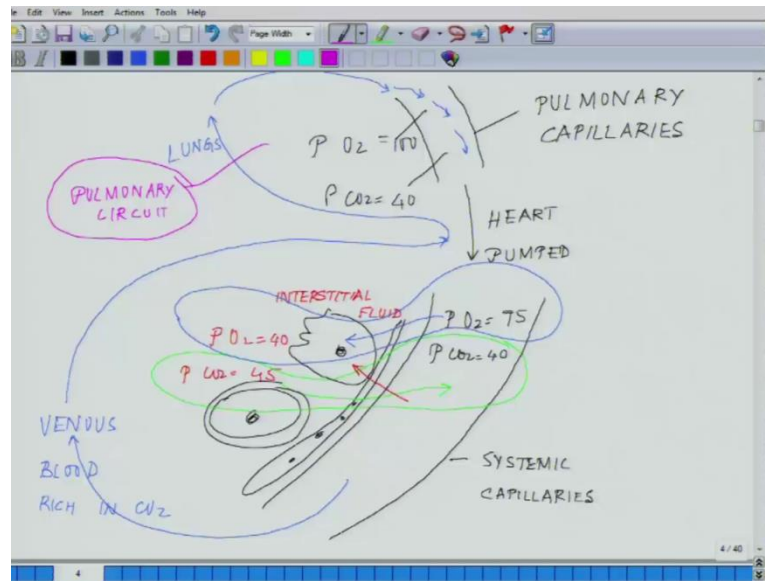 e Edit View Insert Actions Tools Help
Page Width
B I
PULMONARY
CAPILLARIES
LUNGS
P O2 = 100
P CO2 = 40
PULMONARY
CIRCUIT
HEART
PUMPED
INTERSTITIAL
FLUID
P O2 = 75
P O2 = 40
P CO2 = 40
P CO2 = 45
VENOUS
BLOOD
RICH IN CO2
SYSTEMIC
CAPILLARIES
4/40
4